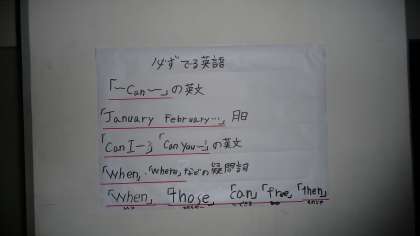 必ずでる英語
「～can～」の英文
「January February…」月日
「Can I～」「Can you～」の英文
「When」、「Where」などの疑問詞
「When」「those」「can」「free」「then」